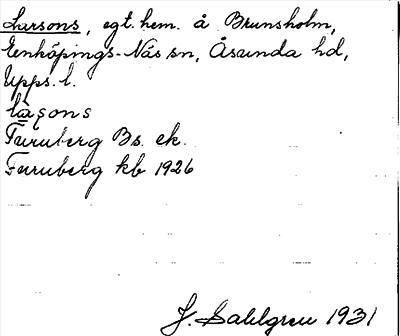 Larsons, egt. hem. å Brunsholm,
Enköpings-Näs sn, Åsunda hd,
Upps. l.
la̱şons
Furuberg Bs. ek.
Furuberg kb 1926
J. Sahlgren 1931